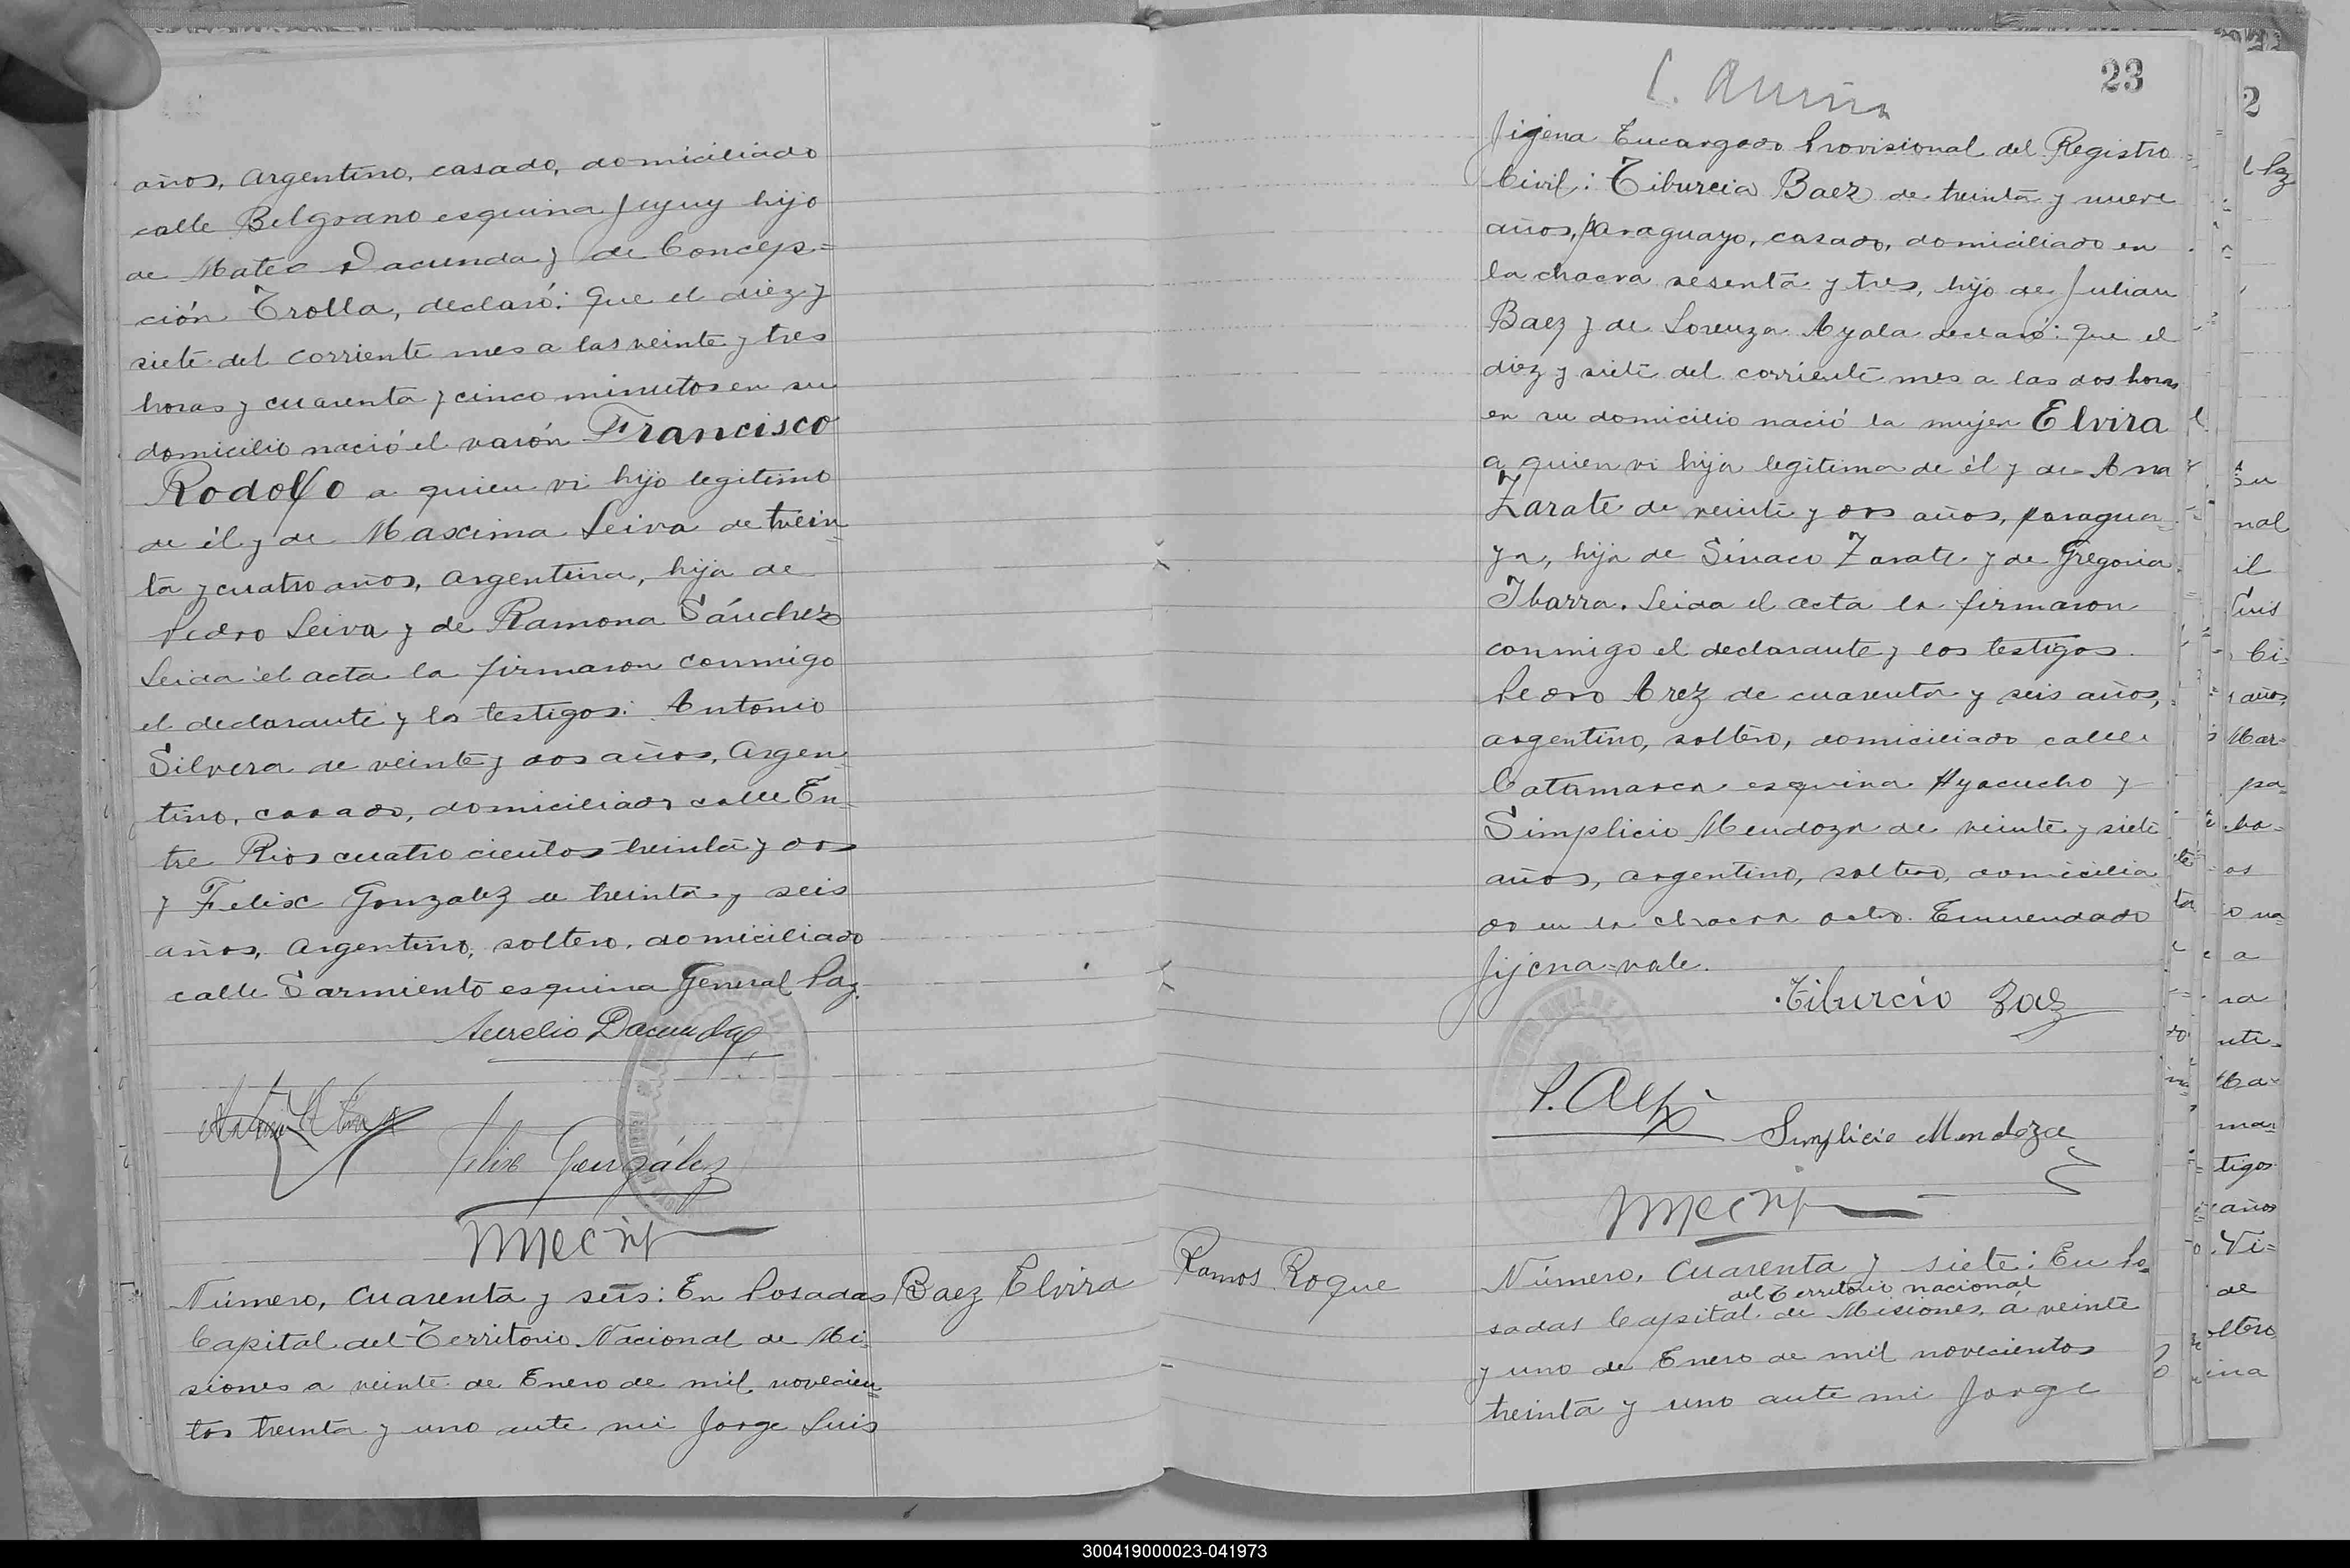 años, Argentino, casado, domiciliado
calle Belgrano esquina Jujuy hijo
de Mateo Dacunda y de Concep=
ción Trolla, declaró: Que el diez y
siete del corriente mes a las veinte y tres
horas y cuarenta y cinco minutos en su
domicilio nació el varón Francisco
Rodolfo a quien vi hijo legitimo
de él y de Maxima Leiva de trein=
ta y cuatro años, Argentina, hija de
Pedro Leiva y de Ramona Sánchez
Leida el acta la firmaron conmigo
el declarante y los testigos: Antonio
Silvera de veinte y dos años, Argen=
tino, casado, domiciliado calle En=
tre Rios cuatrocientos treinta y dos
y Felix Gonzalez de treinta y seis
años, Argentino, soltero, domiciliado
calle Sarmiento esquina General Paz.
Aurelio Dacunda
Felix González
Número, cuarenta y seis: En Posadas
Capital del Territorio Nacional de Mi=
siones a veinte de Enero de mil novecien=
tos treinta y uno ante mi Jorge Luis
Baez Elvira
23
Jijena Encargado Provisional del Registro
Civil: Tiburcia Baez de treinta y nueve
años, paraguayo, casado, domiciliado en
la chacra sesenta y tres, hijo de Julian
Baez y de Lorenza Ayala declaró: Que el
diez y siete del corriente mes a las dos horas
en su domicilio nació la mujer Elvira
a quien vi hija legitima de él y de Ana
Zarate de veinte y dos años, paragua=
ya, hija de Sinaco Zarate y de Gregoria
Ibarra. Leida el acta la firmaron
conmigo el declarante y los testigos
Pedro Arez de cuarenta y seis años,
argentino, soltero, domiciliado calle
Catamarca esquina Ayacucho y
Simplicio Mendoza de veinte y siete
años, argentino, soltero, domicilia
do en la chacra ocho. Enmendado
Jijena=vale.
Tiburcio Baez
Simplicio Mendoza
Ramos Roque
Número, cuarenta y siete: En Po=
del Territorio nacional
sadas Capital de Misiones, á veinte
y uno de Enero de mil novecientos
treinta y uno ante mi Jorge
300419000023-041973